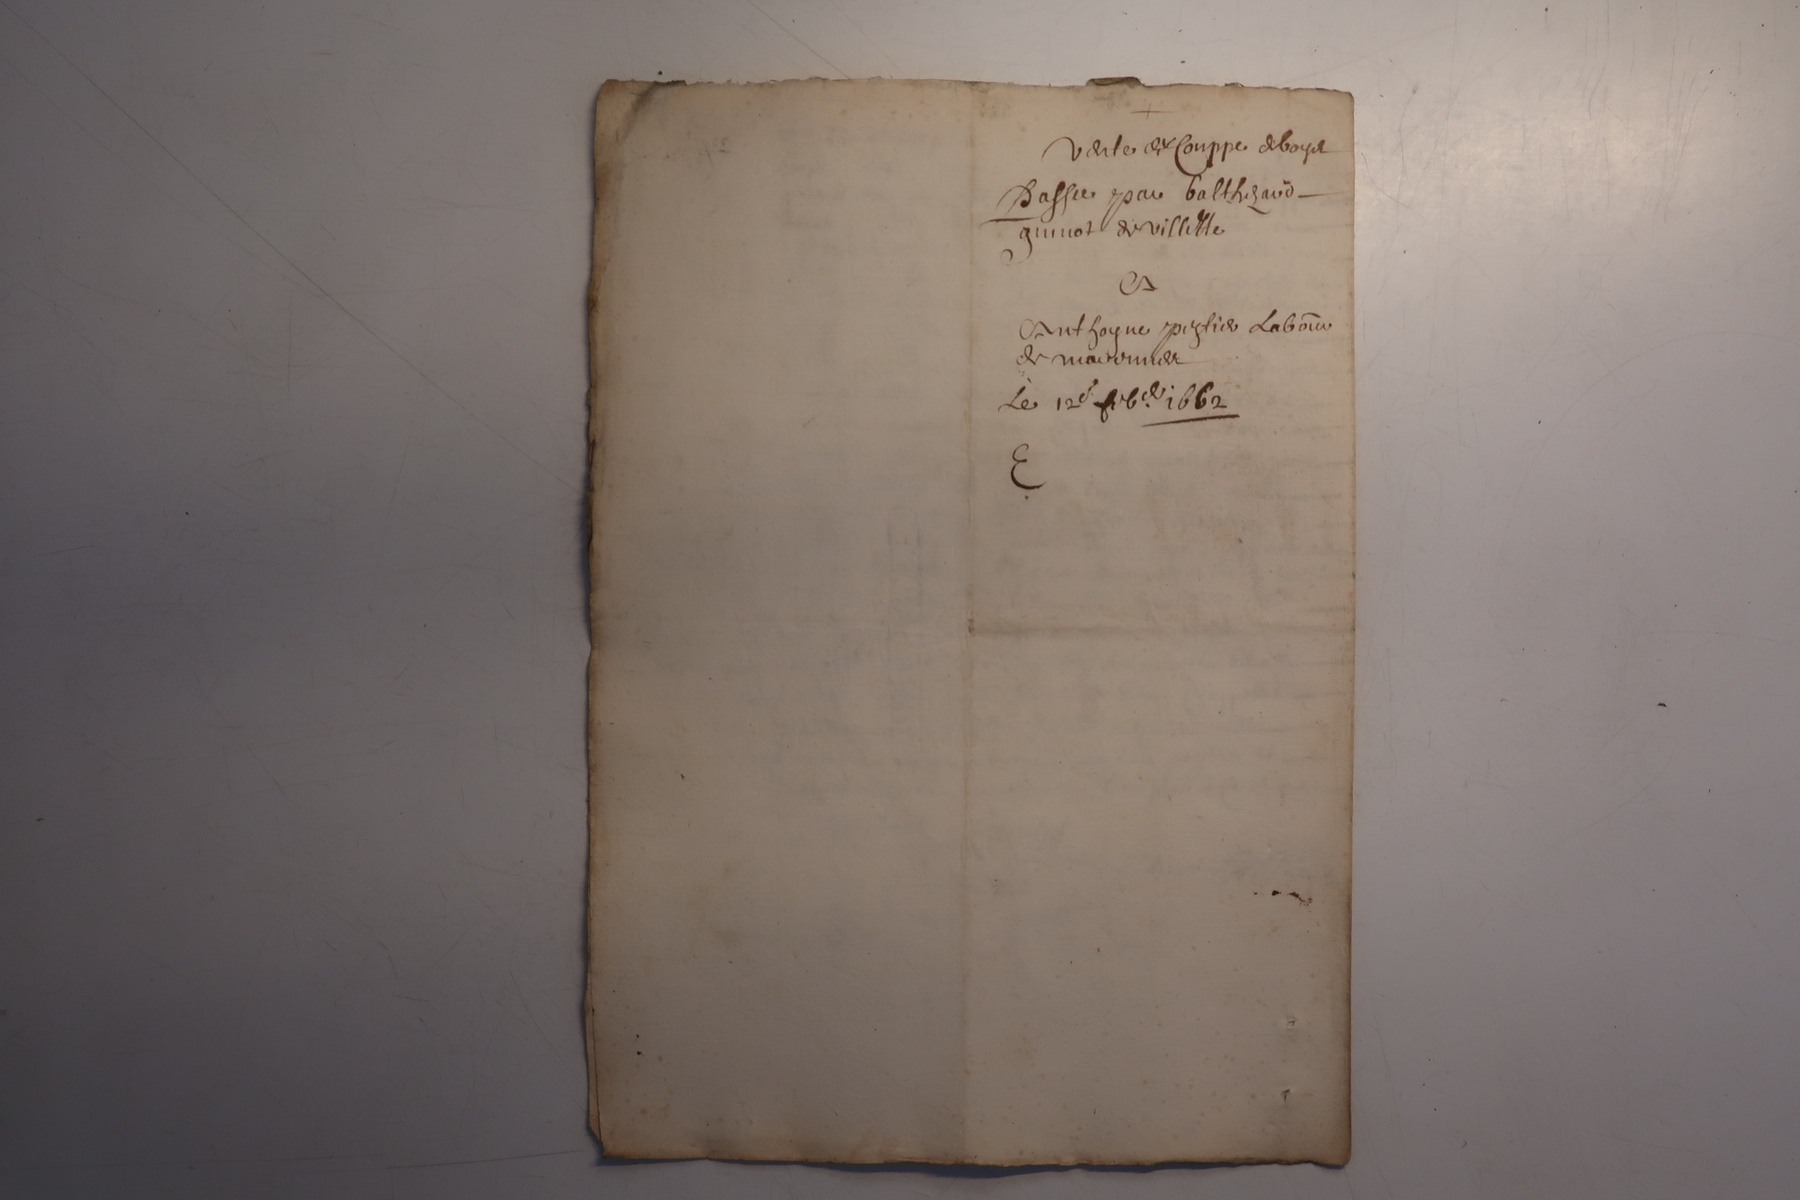 Vente de Couppe de boys
Passee par balthezard
guinot de villette
A
Anthoyne peztier Labour
de
Le 12e 1662
E